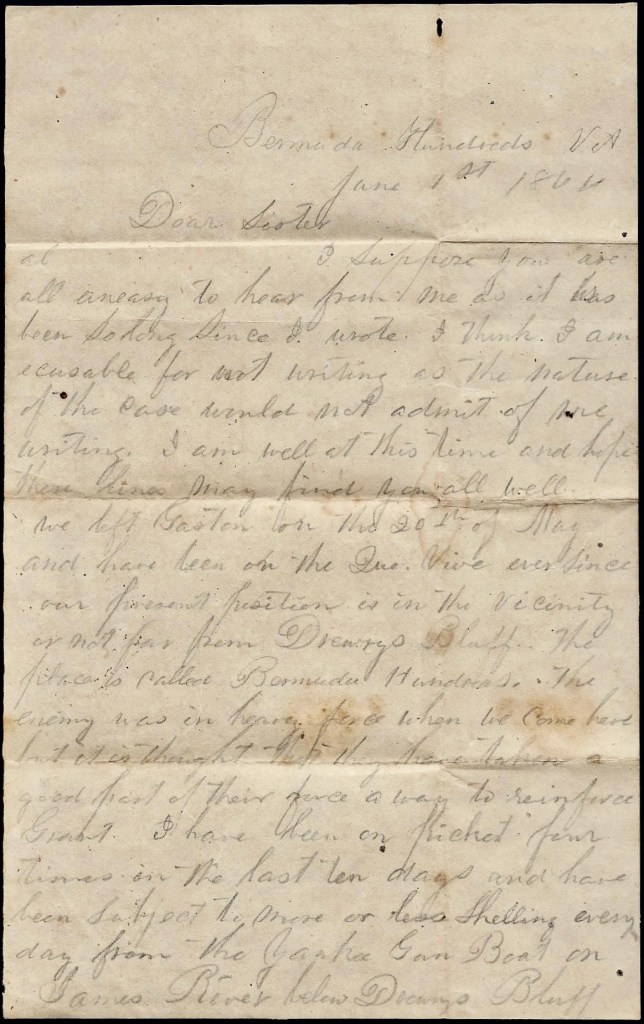 Bermuda Hundreds VA
June 1st 1864
Dear Sister
al I suppose you are
all aneasy to hear from me as it has
been so long since I wrote. I think I am
ecusable for not writing as the nature
of the case would not admit of me
writing. I am well at this time and hope
these lines may find you all well
we left Gaston on the 20th of May
and have been on the Que. Vive ever since
our present position is in the vicinity
or not far from Drewrys Bluff. The
place is called Bermuda Hundreds. The
enemy was in heavy force when we come here
but it is thought that they have taken a
good part of their force a way to reinforce
Grant. I have been on picket four
times in the last ten days and have
been subject to more or less shelling every
day from the Yankee Gun Boat on
James River below Drewrys Bluff